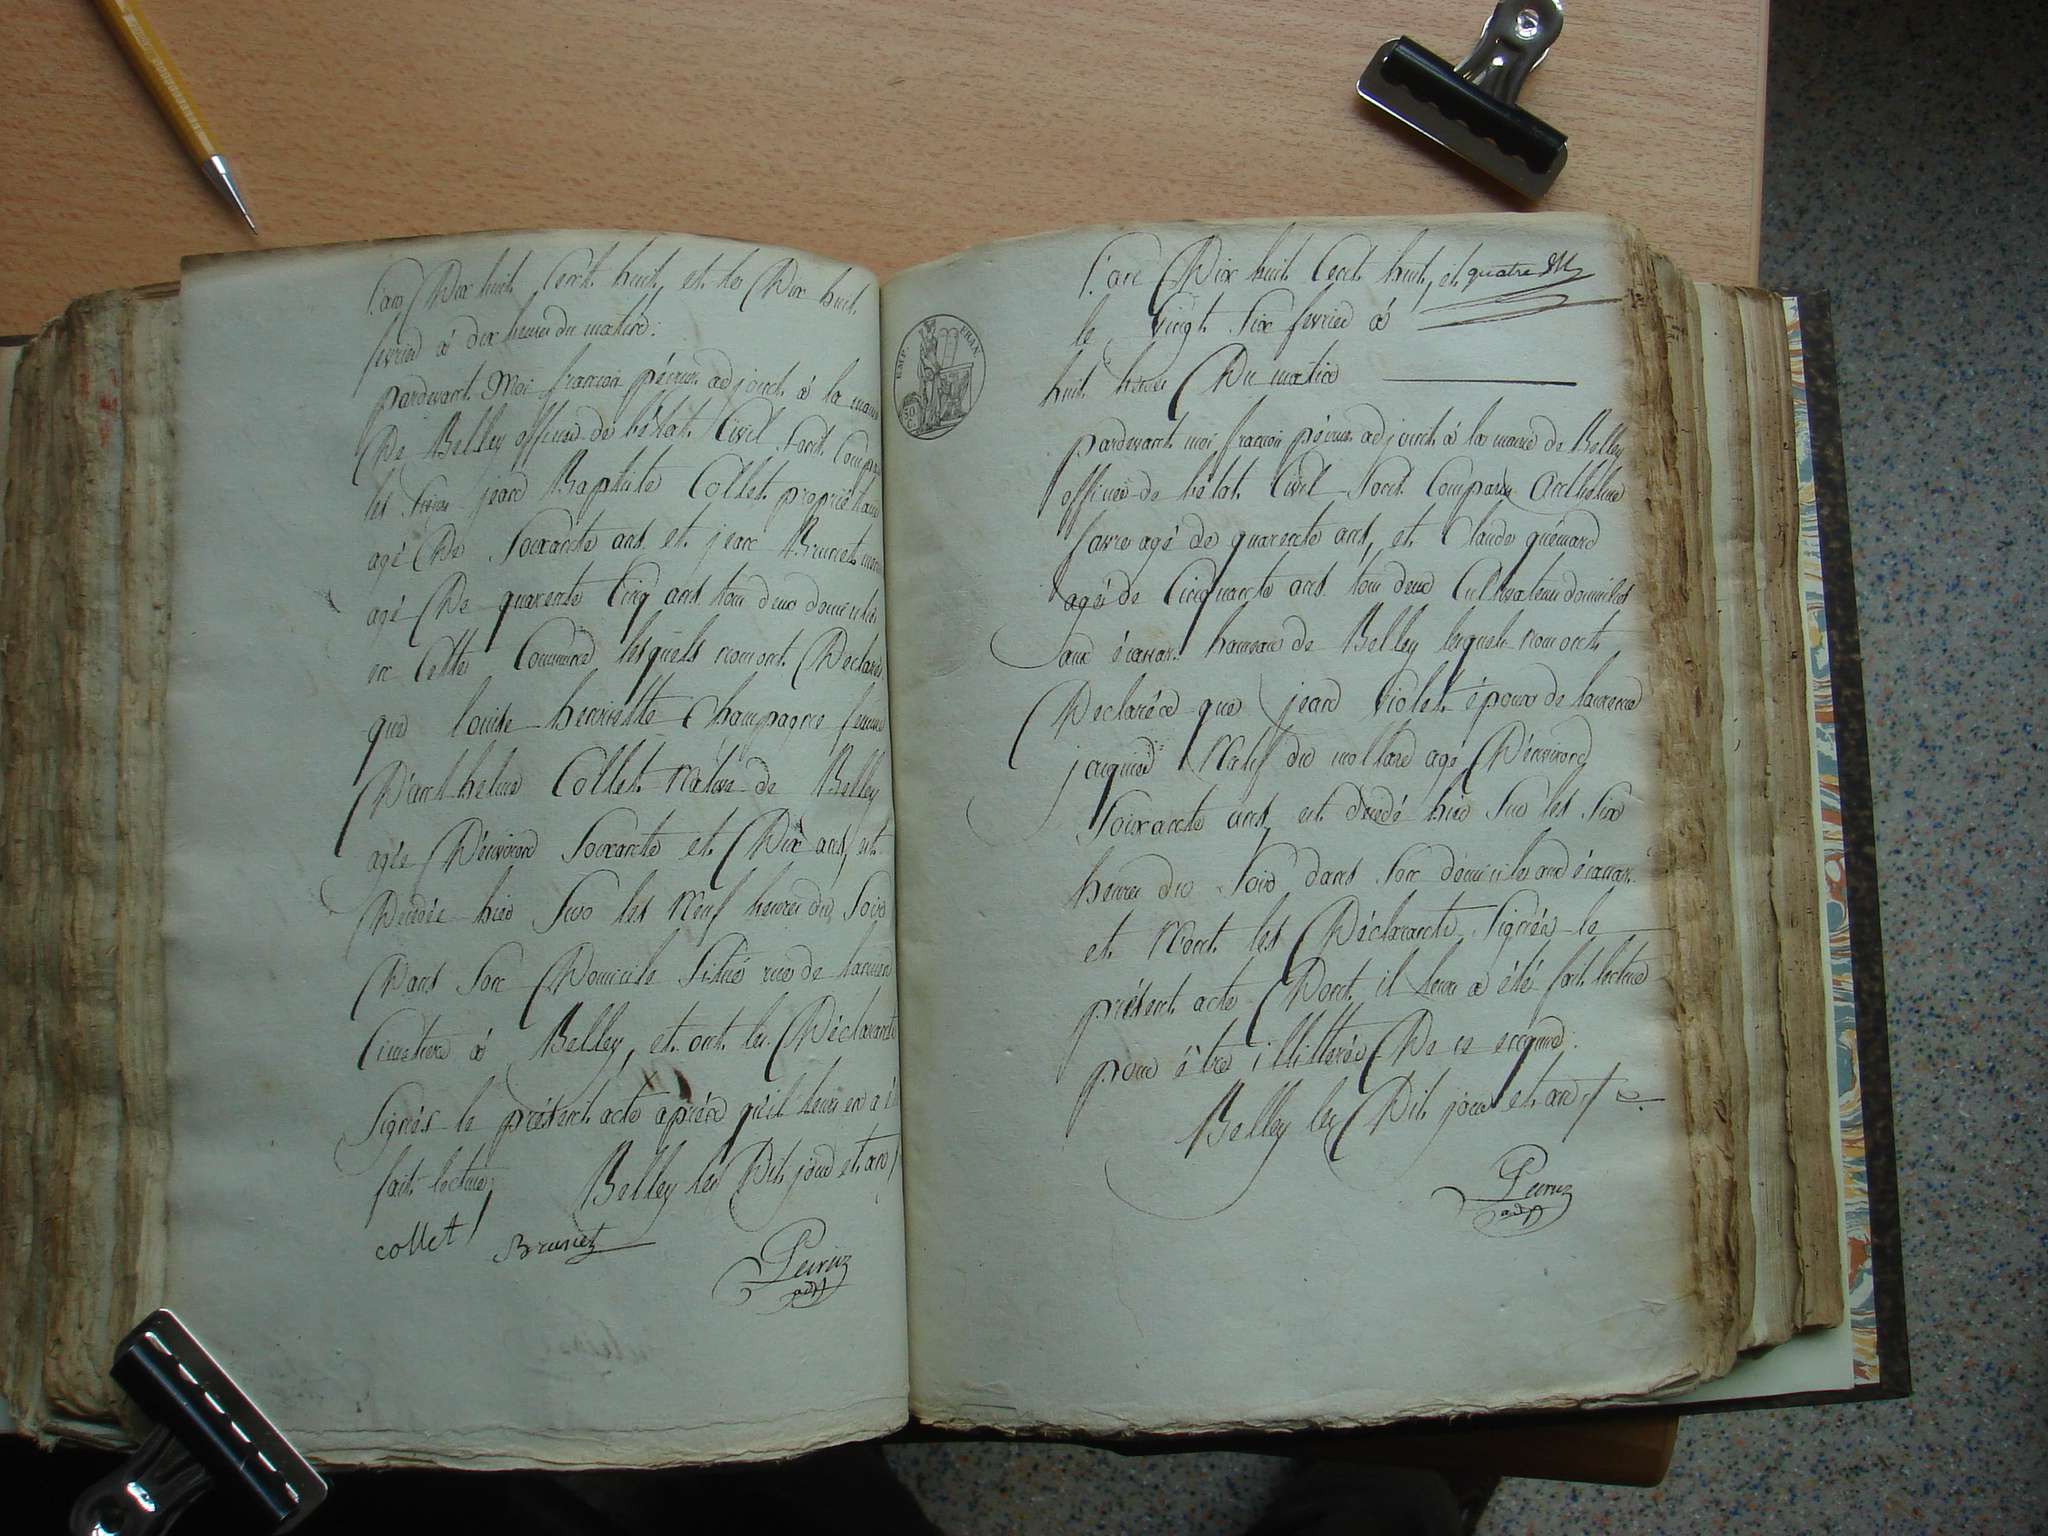 l'an Dix huit Cent huit, et le Dix huit
fevrier à dix heures du matin:
pardevant Moi françois péiruz adjoint à la mairie
De Belley officier de l'état Civil sont Comparu
les sieurs jean Baptiste Collet propriétaire
agé De Soixante ans et jean Brunet
agé De quarente Cinq ans tous deux domiciliés
en Cette Commune lesquels nom ont Déclarés
que louise henriette Champagne femme
D'anthelme Collet Native de Belley
agée D'environ Soixante et Dix ans, est
Décédée hier Sur les Neuf heures du Soir
Dans Son Domicile Situé rue de lancien
Cimetiere à Belley, et ont les Déclarants
Signés le présent acte après qu'il leur en a été
fait lecture, Belley les Dit jour et an
collet Brunet
Peiruz
adjt
EMP. FRAN.
50 C.
l'an Dix huit Cent huit, et quatre
le Vingt Six fevrier à
huit heures Du matin
pardevant moi françois péiruz adjoint à la mairie de Belley
officier de l'état Civil Sont Comparu Anthelme
favre agé de quarente ans, et Claude guémard
agé de Cinquante ans tous deux Cultivateurs domiciliés
aux écassas hameau de Belley lesquels nom ont
Déclarés que jean Violet époux de laurence
jacquier Natif du mollard agé D'environ
Soixante ans, est décédé hier Sur les Six
heures du Soir dans Son domicile aux écassas
et N'ont les Déclarants Signés le
présent acte Dont il leur a été fait lecture
pour être illitterés De ce enquis.
Belley les Dit jour et an
Peiruz
adjt